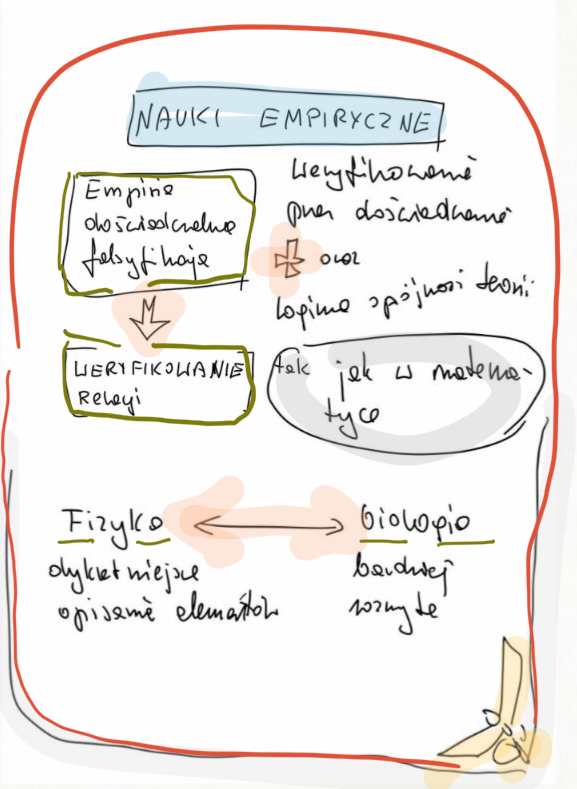 NAUKI EMPIRYCZNE
Empiria
doświadczalna
falsyfikacja
WERYFIKOWANIE
Relacji
weryfikowanie
przez doświadczenie
oraz
logiczna spójność teorii
tak jak w matema-
tyce
Fizyka
biologia
opisanie elementów
bardziej
rozmyte